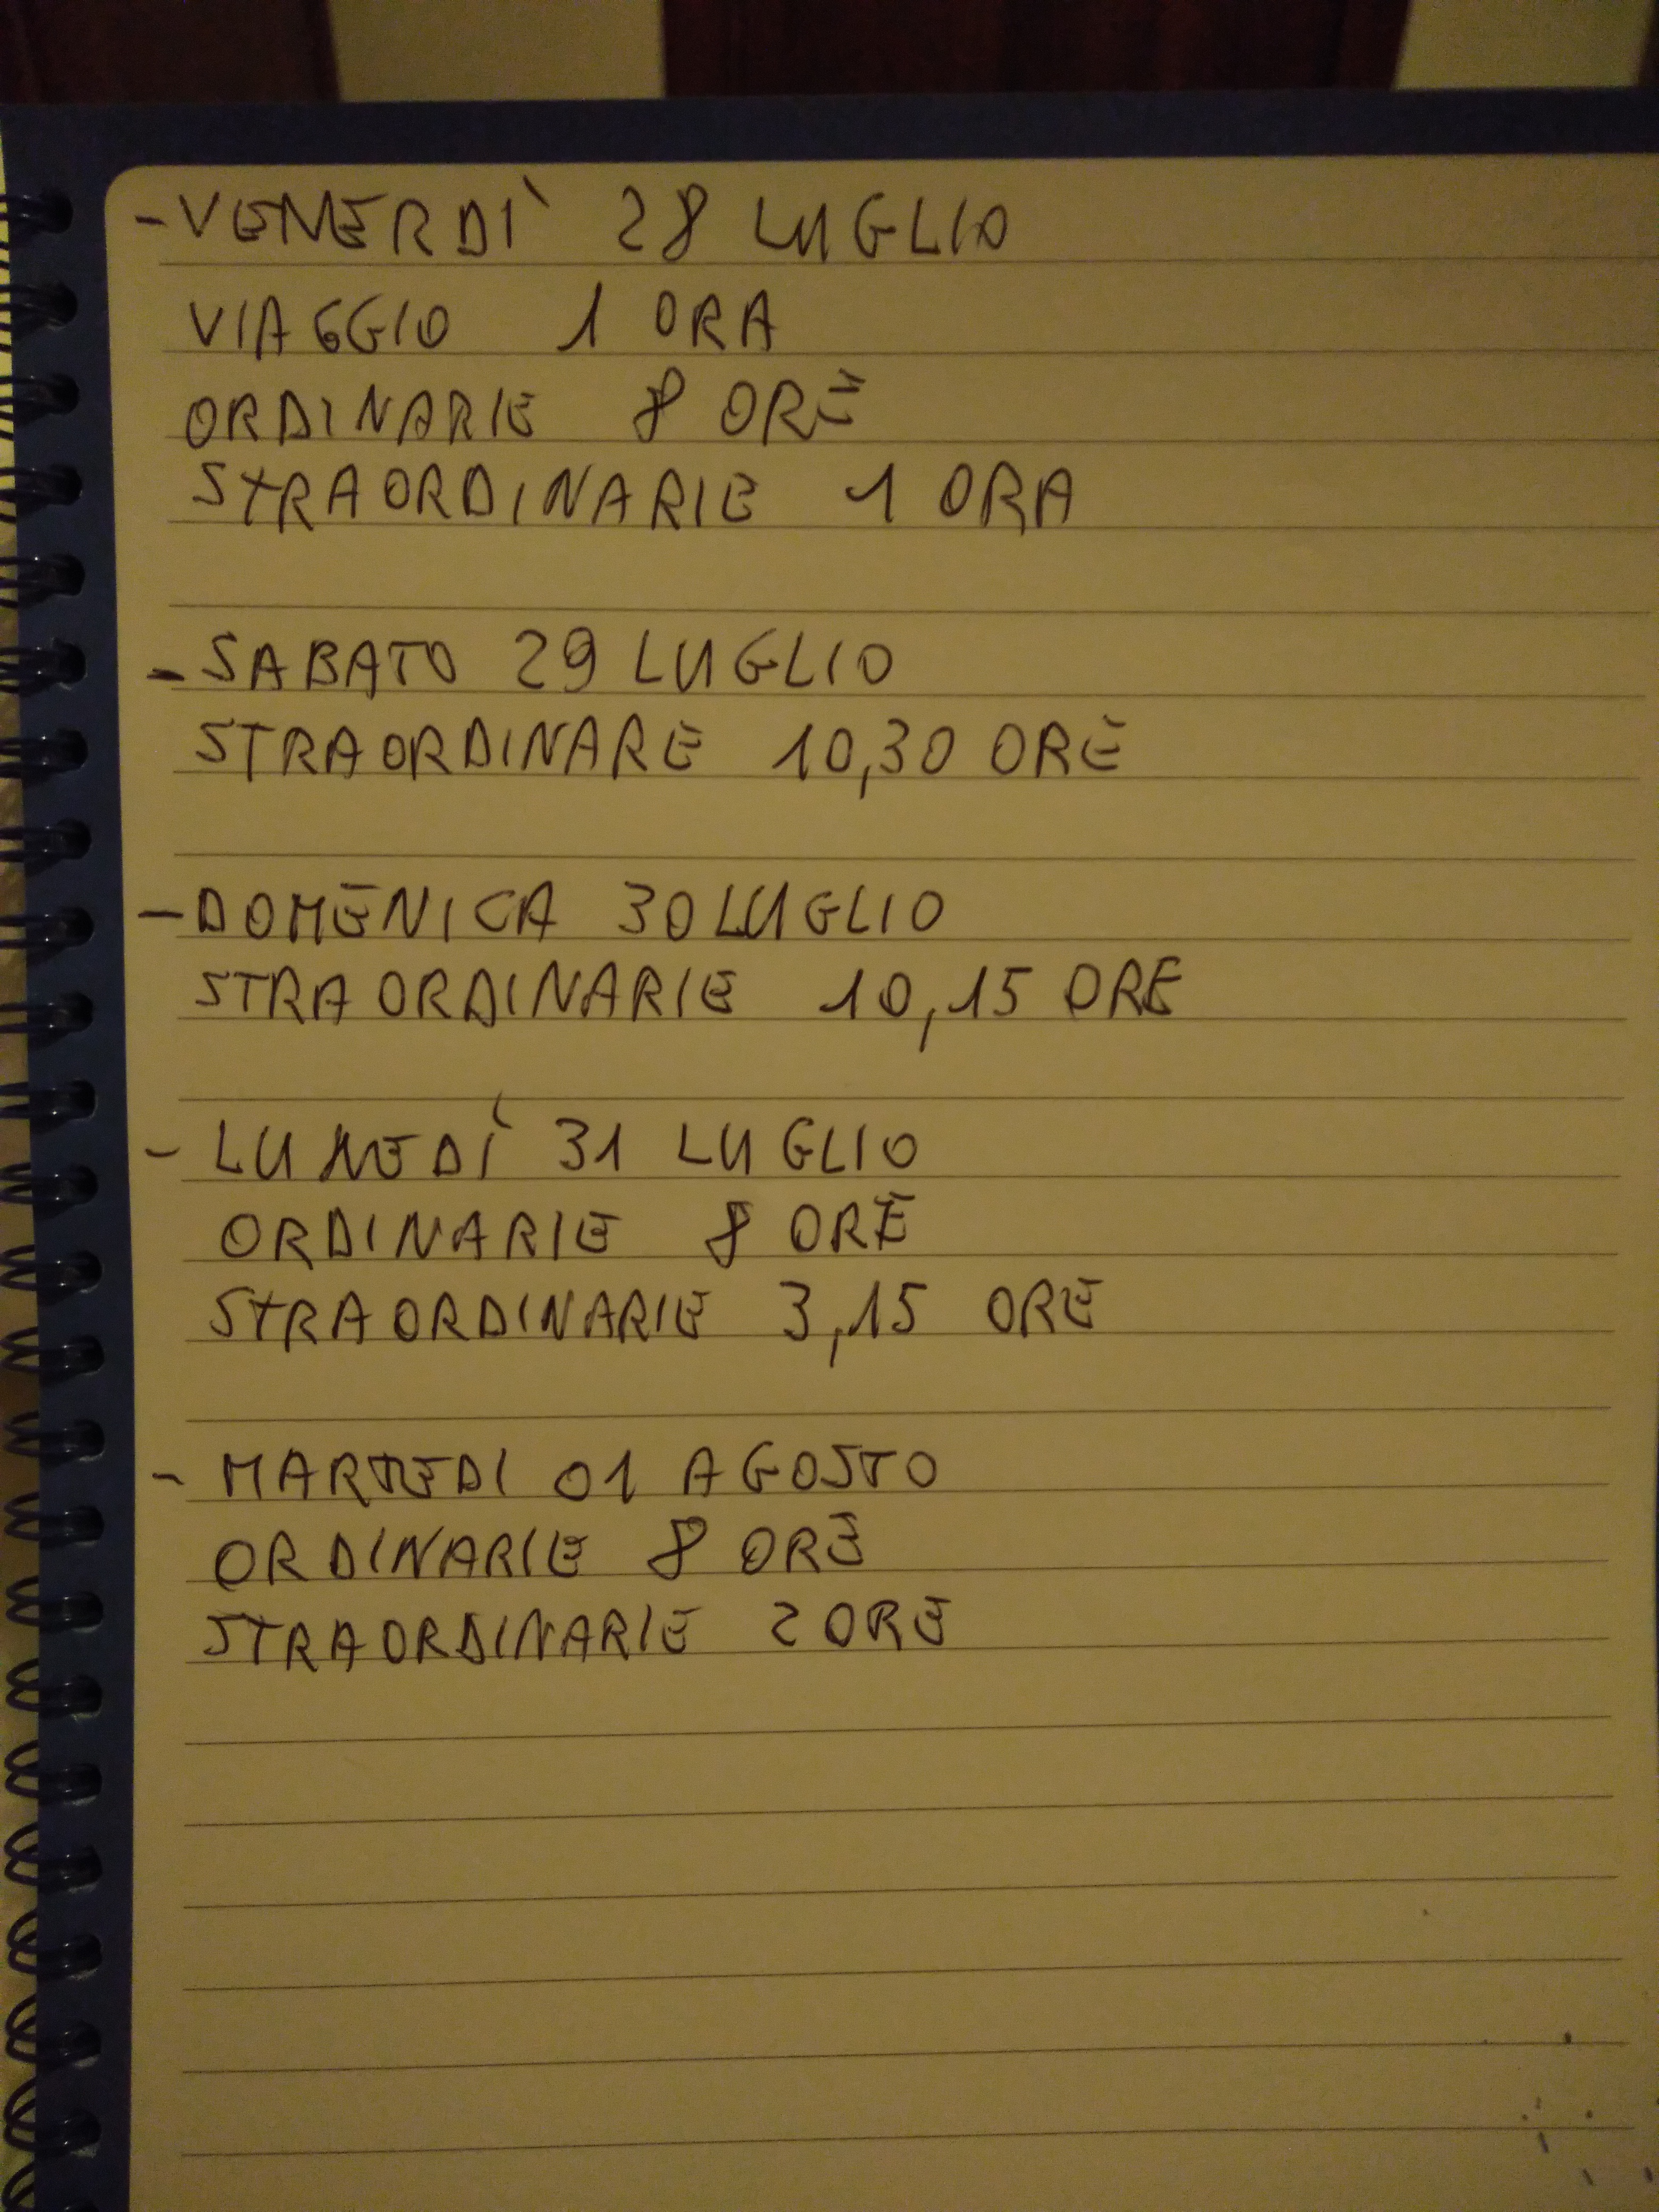 -VENERDÌ 28 LUGLIO
VIAGGIO 1 ORA
ORDINARIE 8 ORE
STRAORDINARIE 1 ORA
-SABATO 29 LUGLIO
STRAORDINARE 10,30 ORE
-DOMENICA 30 LUGLIO
STRAORDINARIE 10,15 ORE
- LUNEDÌ 31 LUGLIO
ORDINARIE 8 ORE
STRAORDINARIE 3,15 ORE
- MARTEDI 01 AGOSTO
ORDINARIE 8 ORE
STRAORDINARIE 2 ORE